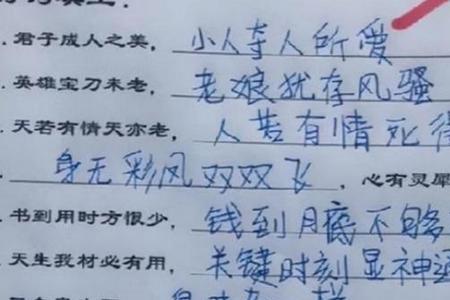 . 君子成人之美，小人夺人所爱
. 英雄宝刀未老，老娘犹存风骚
. 天若有情天亦老，人若有情死得
. 身无彩风双双飞，心有灵犀
. 书到用时方恨少，钱到月底不够
. 天生我材必有用，关键时刻显神通